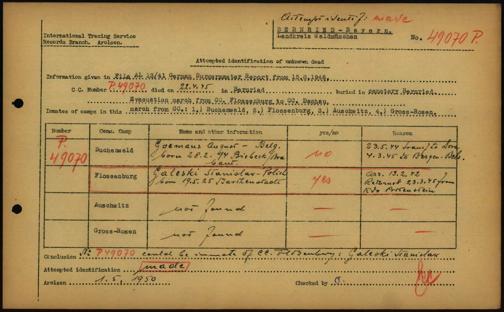 Attempt identif. made
International Tracing Service
Records Branch. Arolsen.
BERNRIED-Bayern.
Landkreis Waldmünchen
No. 49070 P.
Attempted identification of unknown dead
Information given in File AL 12/61 German Burgermaster Report from
C.C. Number P49070 died on 22.4.45 in Bernried buried in cemetery Bernried
Evacuation march from CC. Flossenburg to CC. Dachau.
Inmates of camps in this march from CC: 1.) Buchenwald, 2.) Flossenburg, 3.) Auschwitz, 4.) Gross-Rosen.
Number Conc. Camp Name and other information yes/no Reason
P. 49070
Buchenwald Goemans August - Belg. born 28.2.94 no 23.5.44 transf. to Dora 4.3.45 to Bergen-Bels.
Flossenburg Galeski Stanislav-Polish born 19.5.25 yes arr. 13.2.42 Returned 23.3.45 from Kdo
Auschwitz not found
Gross-Rosen not found
Conclusion Nr P49070 could be inmate of CC. Flossenburg: Galeski Stanislaw
Attempted identification made
Arolsen 1.5.1950 Checked by